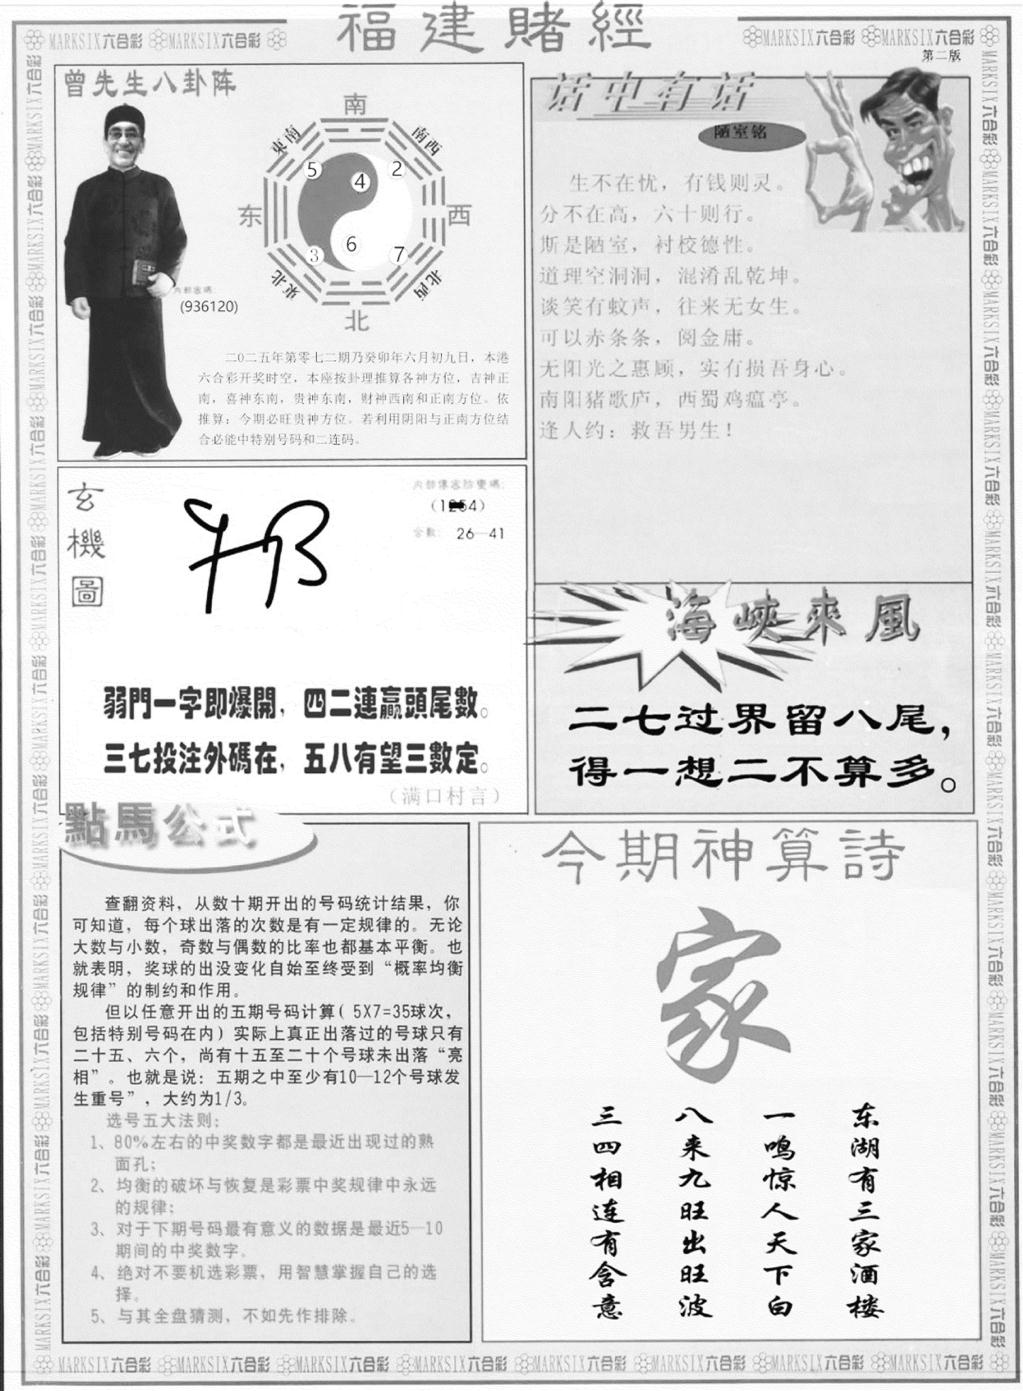 福建賭經
MARKSIX六合彩 MARKSIX六合彩
MARKSIX六合彩 MARKSIX六合彩
第二版
曾先生八卦阵
南
東南
南西
5
4
2
东
西
3
6
7
東北
北西
北
内部密碼:
(936120)
二0二五年第零七二期乃癸卯年六月初九日，本港
六合彩开奖时空，本座按卦理推算各神方位，吉神正
南，喜神东南，贵神东南，财神西南和正南方位。依
推算：今期必旺贵神方位。若利用阴阳与正南方位结
合必能中特别号码和二连码。
话中有话
陋室铭
生不在忧，有钱则灵。
分不在高，六十则行。
斯是陋室，衬校德性。
道理空洞洞，混淆乱乾坤。
谈笑有蚊声，往来无女生。
可以赤条条，阅金庸。
无阳光之惠顾，实有损吾身心。
南阳猪歌庐，西蜀鸡瘟亭。
逢人约：救吾男生！
玄機圖
合數: 26—41
弱門一字即爆開，四二連贏頭尾數。
三七投注外碼在，五八有望三數定。
（满口村言）
海峽來風
二七过界留八尾，
得一想二不算多。
點馬公式
查翻资料，从数十期开出的号码统计结果，你
可知道，每个球出落的次数是有一定规律的。无论
大数与小数，奇数与偶数的比率也都基本平衡。也
就表明，奖球的出没变化自始至终受到“概率均衡
规律”的制约和作用。
但以任意开出的五期号码计算( 5X7=35球次，
包括特别号码在内) 实际上真正出落过的号球只有
二十五、六个，尚有十五至二十个号球未出落“亮
相”。也就是说：五期之中至少有10—12个号球发
生重号”，大约为1/3。
选号五大法则：
1、80%左右的中奖数字都是最近出现过的熟
面孔；
2、均衡的破坏与恢复是彩票中奖规律中永远
的规律；
3、对于下期号码最有意义的数据是最近5—10
期间的中奖数字。
4、绝对不要机选彩票，用智慧掌握自己的选
择。
5、与其全盘猜测，不如先作排除。
今期神算詩
家
东湖有三家酒楼
一鸣惊人天下白
八来九旺出旺波
三四相连有含意
MARKSIX六合彩 MARKSIX六合彩 MARKSIX六合彩 MARKSIX六合彩 MARKSIX六合彩 MARKSIX六合彩 MARKSIX六合彩 MARKSIX六合彩